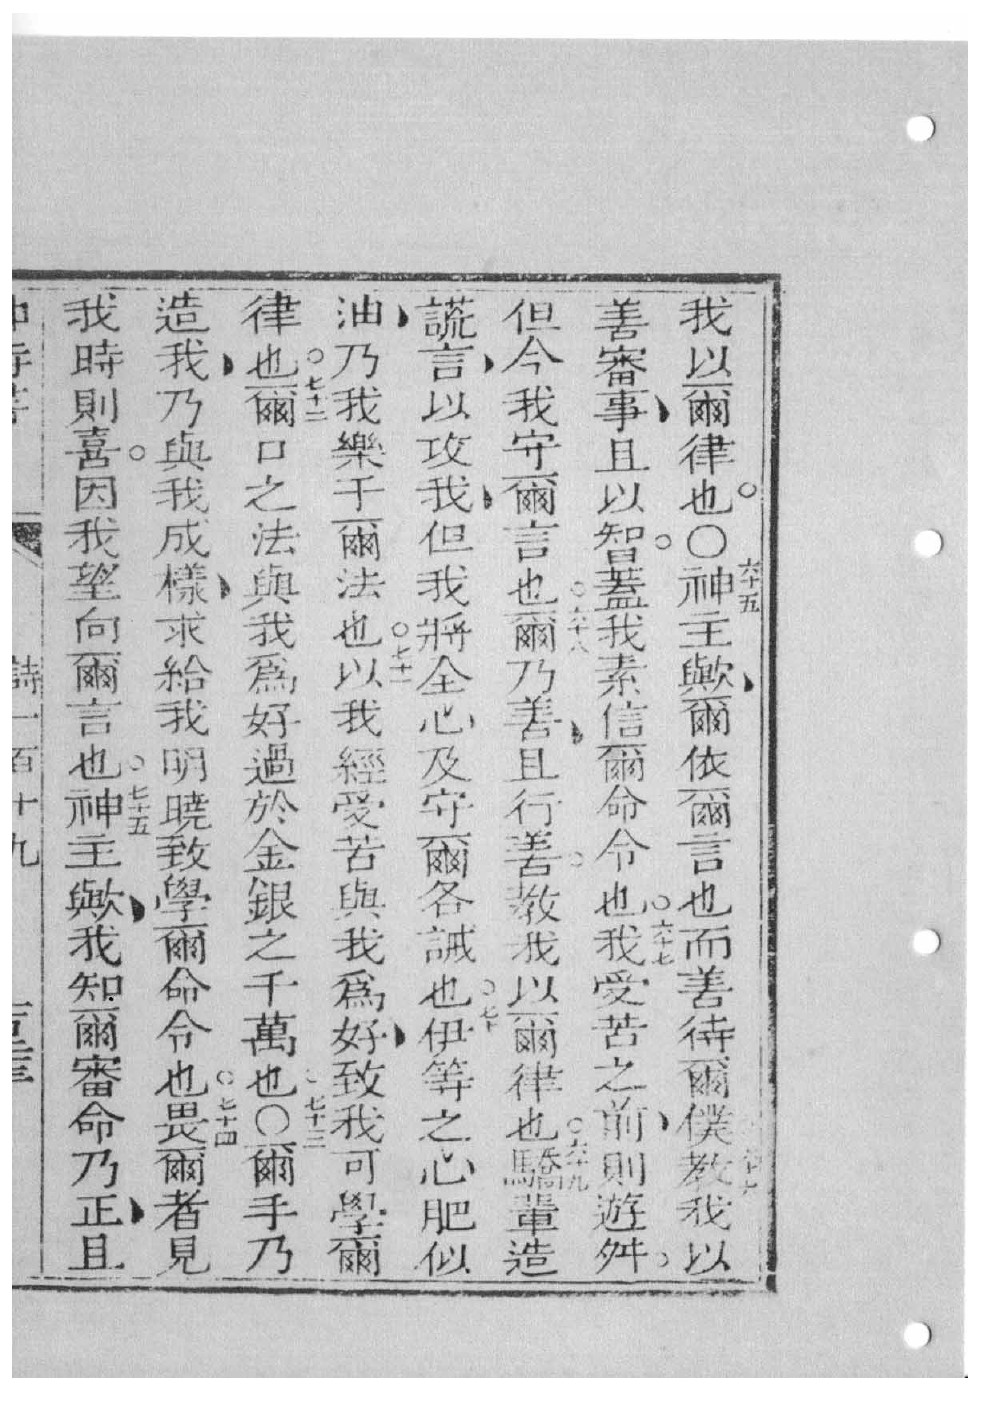 我以爾律也○六十五神主歟爾依爾言也而善待爾僕六十六教我以
善審事且以智蓋我素信爾命令也六十七我受苦之前則遊舛
但今我守爾言也六十八爾乃善且行善教我以爾律也六十九驕輩造
謊言以攻我但我將全心及守爾各誡也七十伊等之心肥似
油乃我樂于爾法也七十一以我經受苦與我為好致我可學爾
律也七十二爾口之法與我為好過於金銀之千萬也○七十三爾手乃
造我乃與我成樣求給我明曉致學爾命令也七十四畏爾者見
我時則喜因我望向爾言也七十五神主歟我知爾審命乃正且
詩一百十九